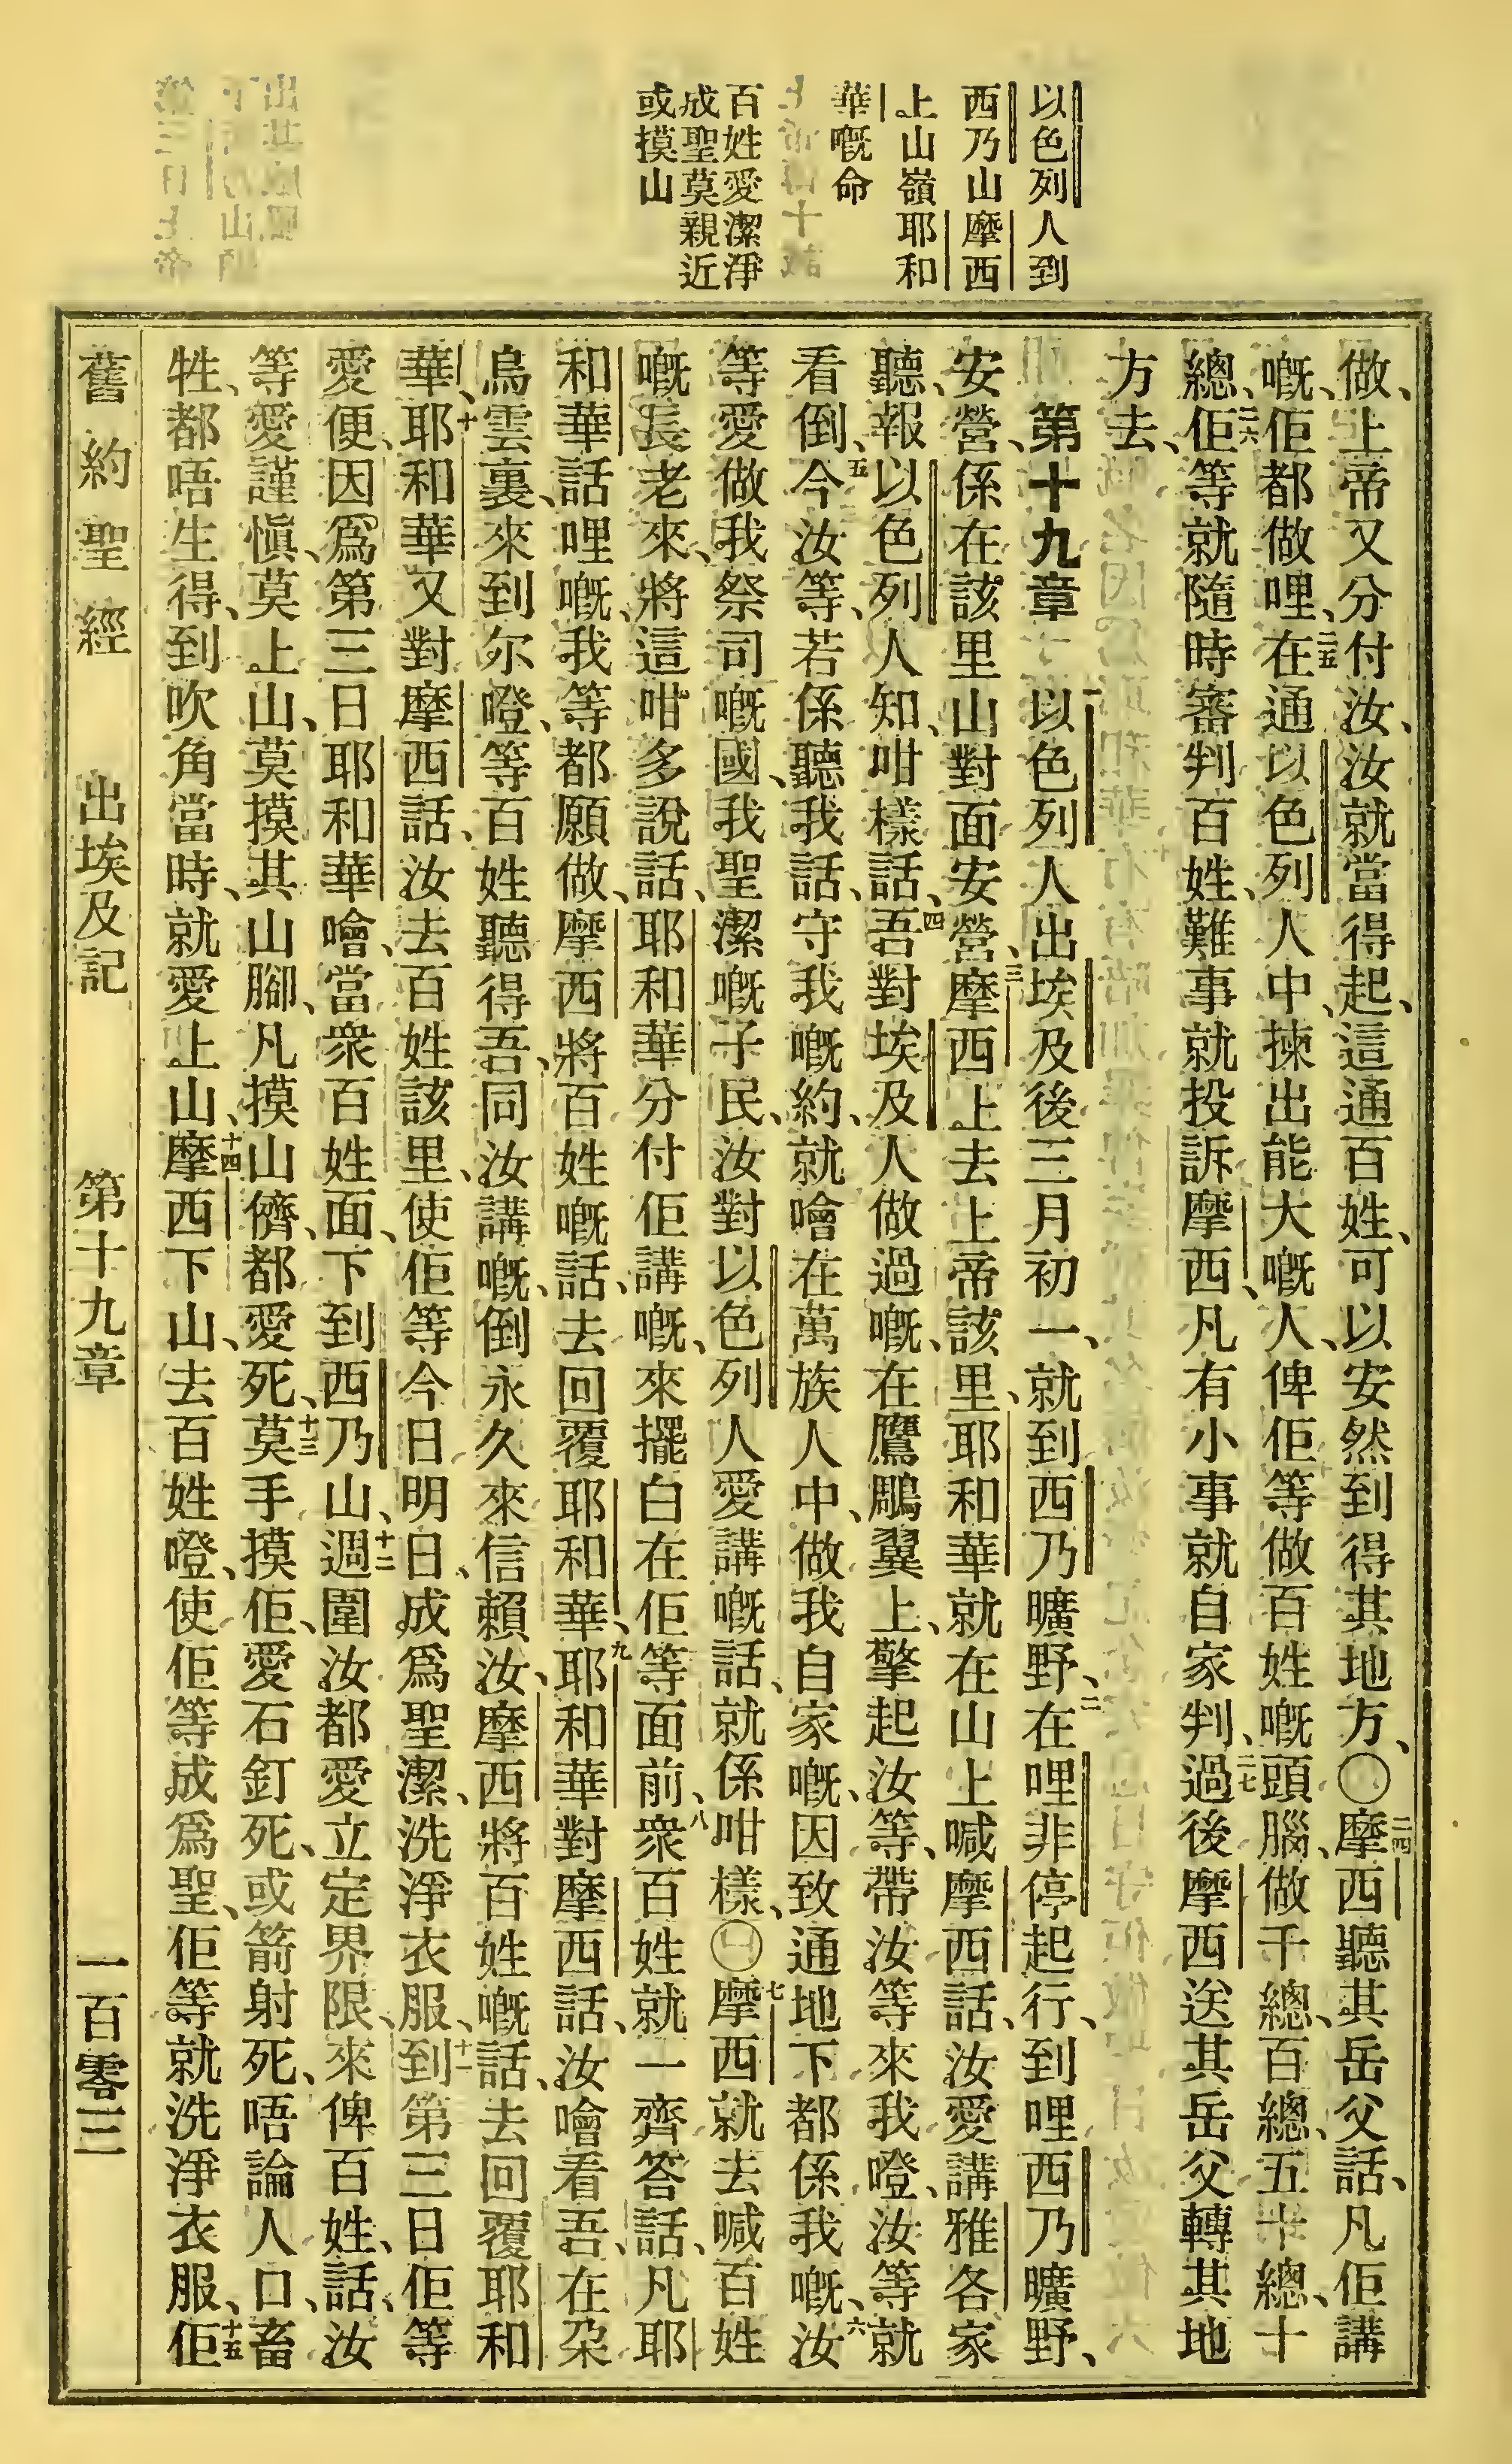 以色列人到
西乃山摩西
上山嶺耶和
華嘅命
百姓愛潔淨
成聖莫親近
或摸山
做、上帝又分付汝、汝就當得起、這通百姓、可以安然到得其地方、〇二四摩西聽其岳父話、凡佢講
嘅、佢都做哩、二五在通以色列人中、揀出能大嘅人、俾佢等做百姓嘅頭腦、做千總、百總、五十總、十
總、二六佢等就隨時審判百姓、難事就投訴摩西、凡有小事就自家判、二七過後摩西送其岳父轉其地
方去、
第十九章 一以色列人出埃及後三月初一、就到西乃曠野、二在哩非停起行、到哩西乃曠野、
安營、係在該里山對面安營、三摩西上去上帝該里、耶和華就在山上喊摩西話、汝愛講雅各家
聽、報以色列人知、咁樣話、四吾對埃及人做過嘅、在鷹鵰翼上、擎起汝等、帶汝等來我嶝、汝等就
看倒、五今汝等、若係聽我話、守我嘅約、就噲在萬族人中、做我自家嘅、因致通地下都係我嘅、六汝
等愛做我祭司嘅國、我聖潔嘅子民、汝對以色列人愛講嘅話、就係咁樣、〇七摩西就去喊百姓
嘅長老來、將這咁多說話、耶和華分付佢講嘅、來擺白在佢等面前、八衆百姓就一齊答話、凡耶
和華話哩嘅、我等都願做、摩西將百姓嘅話、去回覆耶和華、九耶和華對摩西話、汝噲看吾、在朶
烏雲裏、來到尒嶝、等百姓聽得吾、同汝講嘅、倒永久來信賴汝、摩西將百姓嘅話、去回覆耶和
華、十耶和華又對摩西話、汝去百姓該里、使佢等今日明日、成爲聖潔、洗淨衣服、十一到第三日佢等
愛便、因爲第三日耶和華噲、當衆百姓面、下到西乃山、十二週圍汝都愛立定界限、來俾百姓、話、汝
等愛謹愼、莫上山、莫摸其山腳、凡摸山儕、都愛死、十三莫手摸佢、愛石釘死、或箭射死、唔論人口、畜
牲、都唔生得、到吹角當時、就愛上山、十四摩西下山、去百姓嶝、使佢等成爲聖、佢等就洗淨衣服、十五佢
舊約聖經 出埃及記 第十九章 一百零三